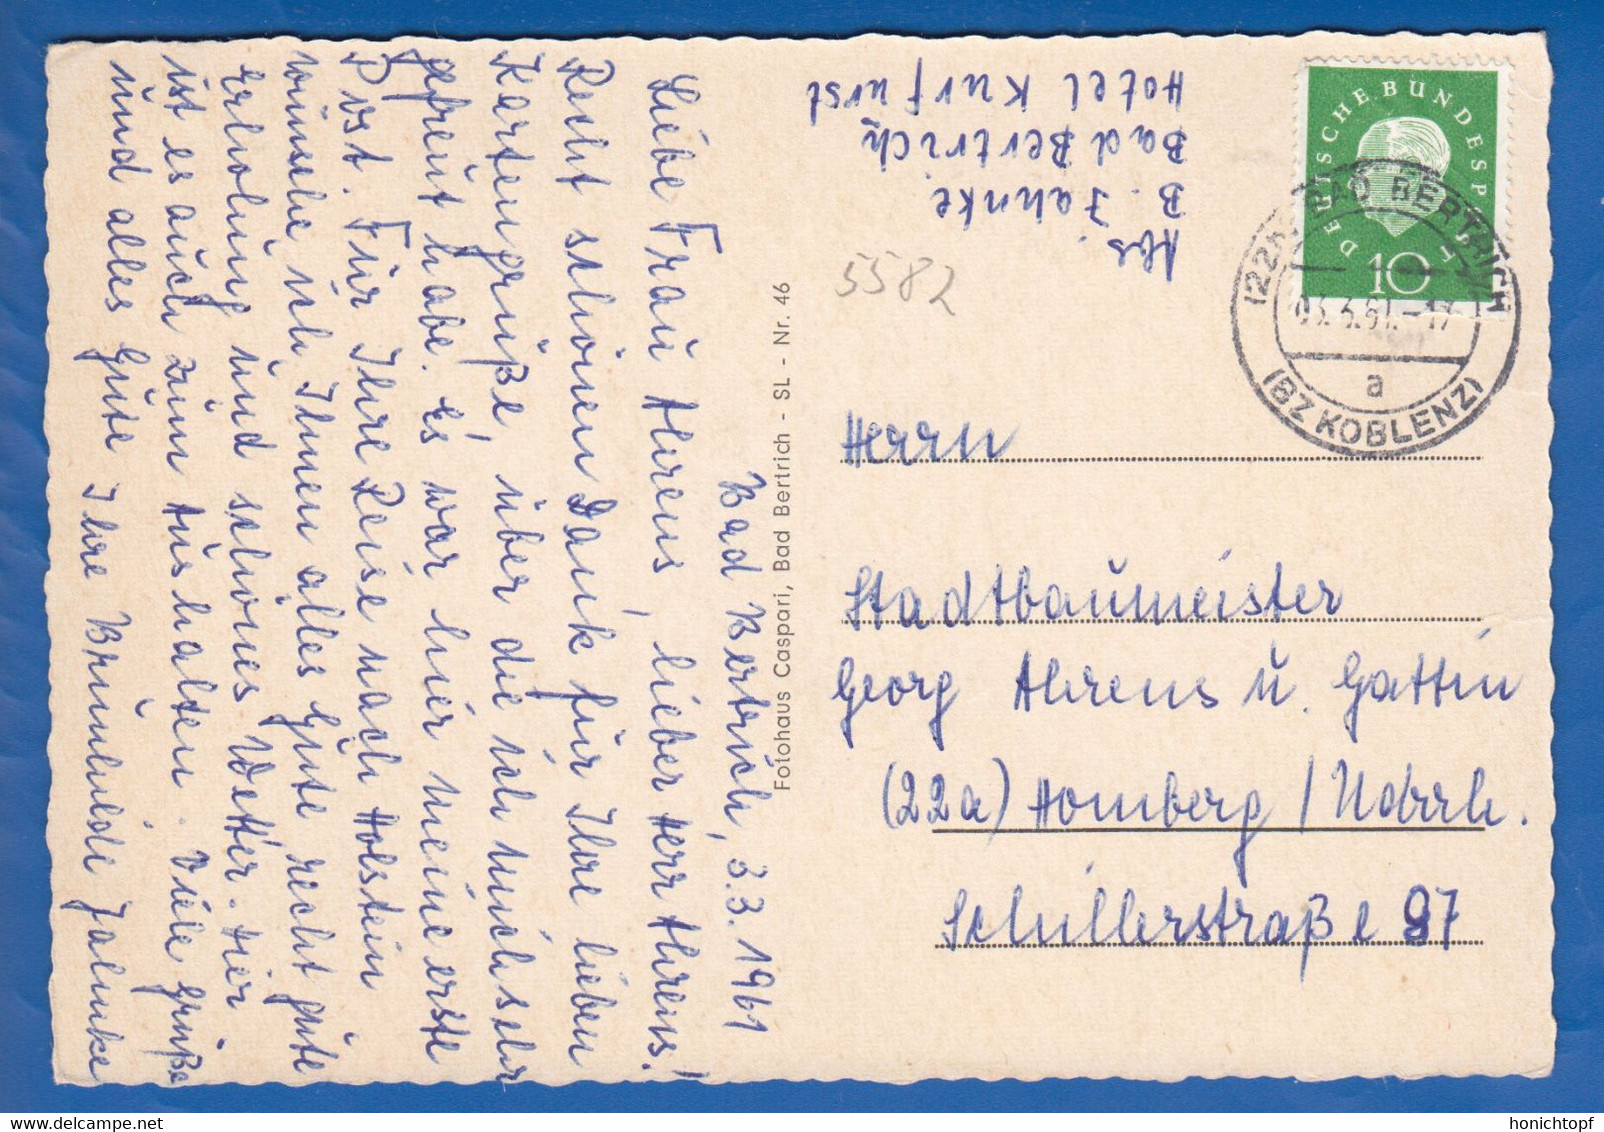 Bad Bertrich, 3.3.1961
Liebe Frau Ahrens, lieber Herr Ahrens!
Recht schönen Dank für Ihre lieben
Kartengrüße, über die ich mich sehr
gefreut habe. Es war hier meine erste
Post. Für Ihre Reise nach Holstein
wünsche ich Ihnen alles Gute, recht gute
Erholung und schönes Wetter. Hier
ist es auch zum Aushalten. Viele Grüße
und alles Gute Ihre Brunhilde Jahnke
Fotohaus Caspari, Bad Bertrich - SL - Nr. 46
Abs.
B. Jahnke
Bad Bertrich
Hotel Kurfürst
5582
DEUTSCHE BUNDESPOST
10
(22b) BAD BERTRICH
03.3.61.-17
a
(BZ KOBLENZ)
Herrn
Stadtbaumeister
Georg Ahrens u. Gattin
(22a) Homberg / Ndrrh.
Schillerstraße 97
honichtopf